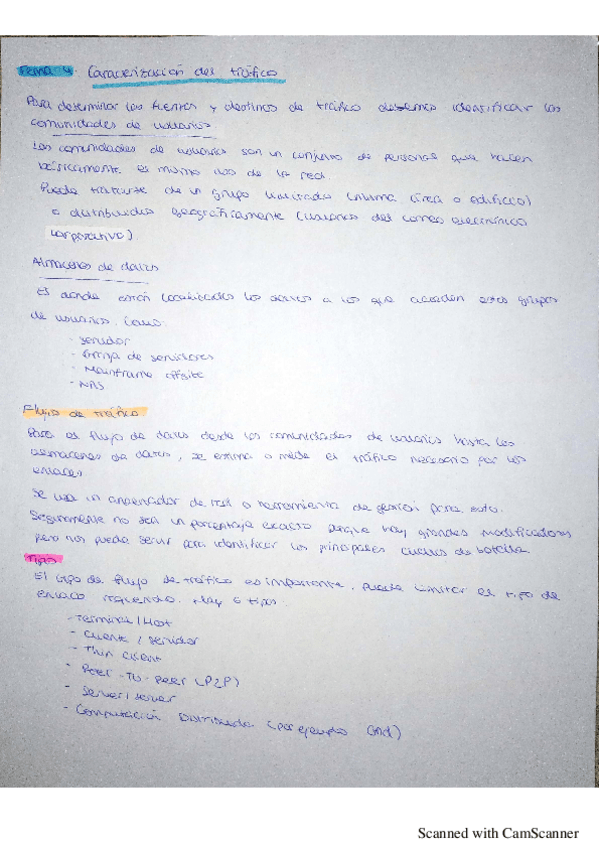 Tema 4. Caracterización del tráfico
Para determinar las fuentes y destinos de tráfico debemos identificar las
comunidades de usuarios
Las comunidades de usuarios son un conjunto de personas que hacen
básicamente el mismo uso de la red.
Puede tratarse de un grupo limitado (misma área o edificio)
o distribuidos geográficamente (usuarios del correo electrónico
corporativo).
Almacenes de datos
Es donde están localizados los a los que acceden estos grupos
de usuarios. Como:
- Servidor
- Granja de servidores
- Mainframe offsite
- NAS
Flujo de tráfico
Para el flujo de datos desde las comunidades de usuarios hasta los
almacenes de datos, se estima o mide el tráfico necesario por los
enlaces
Se usa un analizador de red o herramienta de gestión para esto.
Seguramente no sea un porcentaje exacto porque hay grandes modificadores
pero nos puede servir para identificar los principales cuellos de botella.
Tipos
El tipo de flujo de tráfico es importante, puede limitar el tipo de
enlace requerido. Hay 6 tipos:
- Terminal / Host
- Cliente / servidor
- Thin client
- Peer-TO-Peer (P2P)
- Server / server
- Computación Distribuida (por ejemplo Grid)
Scanned with CamScanner